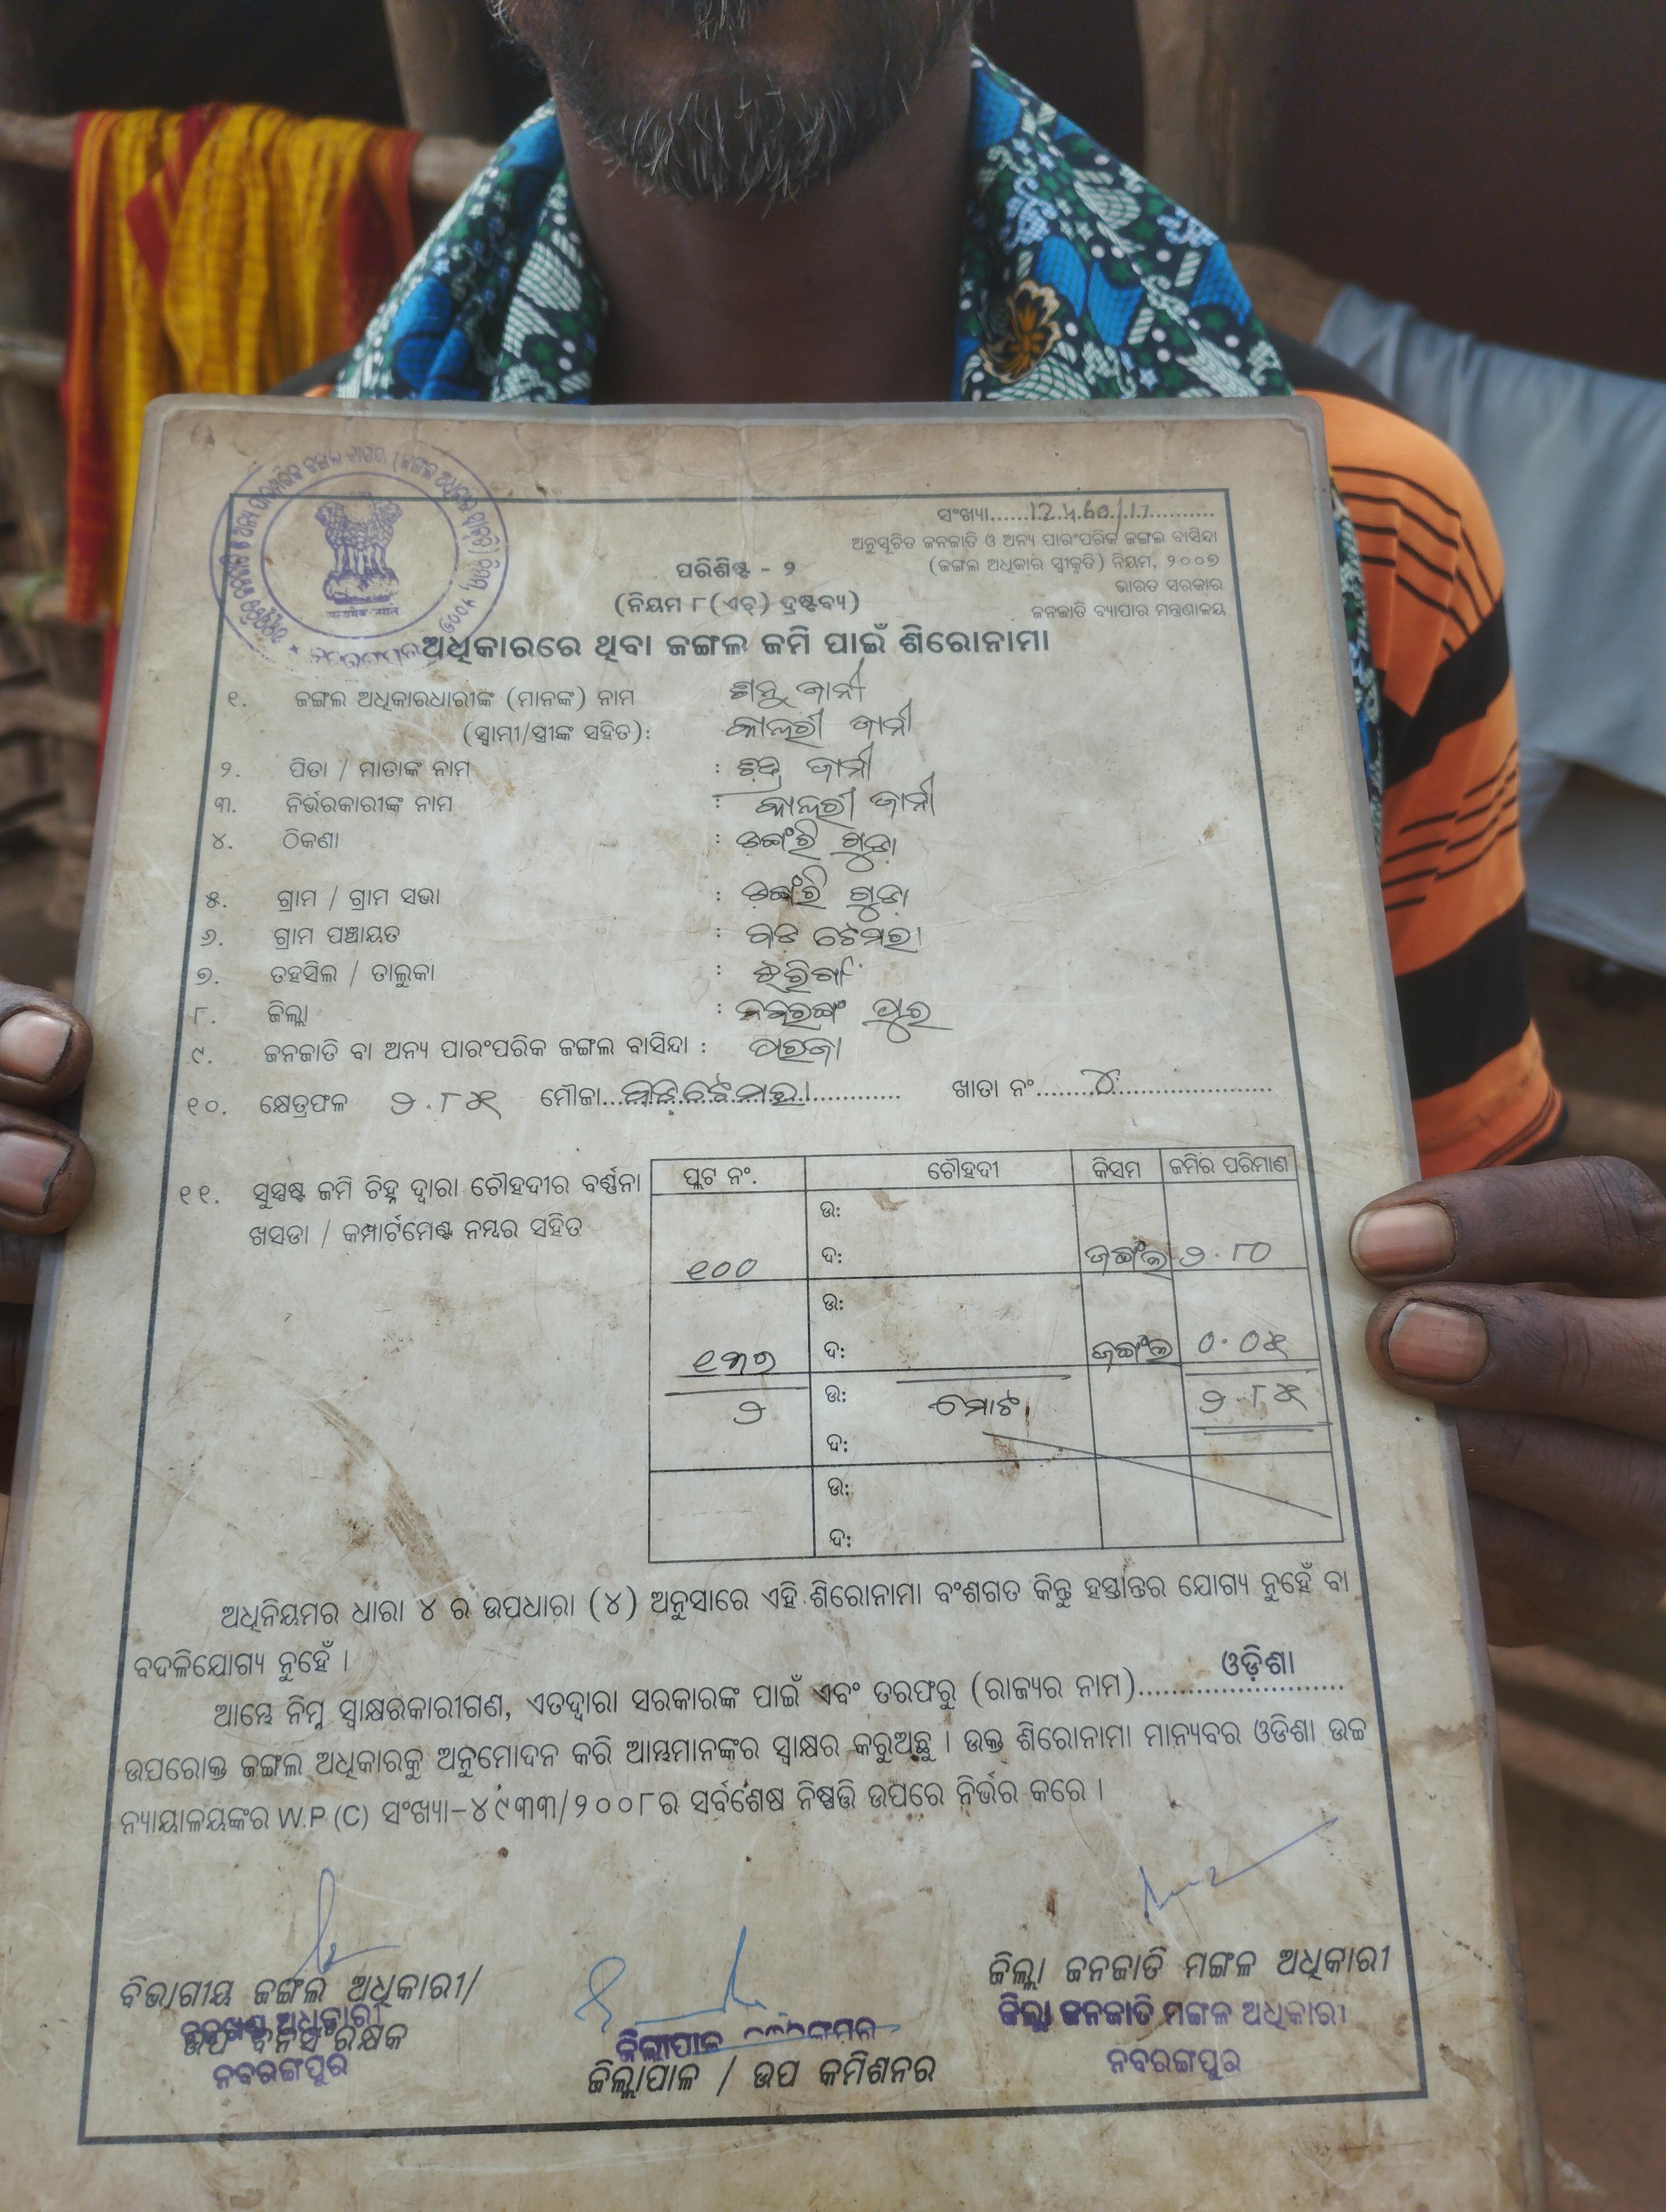 ସଂଖ୍ୟା.....12460/17..........
ଅନୁସୂଚିତ ଜନଜାତି ଓ ଅନ୍ୟ ପାରଂପରିକ ଜଙ୍ଗଲ ବାସିନ୍ଦା
(ଜଙ୍ଗଲ ଅଧିକାର ସ୍ୱୀକୃତି) ନିୟମ, ୨୦୦୭
ଭାରତ ସରକାର
ଜନଜାତି ବ୍ୟାପାର ମନ୍ତ୍ରଣାଳୟ
ପରିଶିଷ୍ଟ - ୨
(ନିୟମ ୮(ଏଚ୍) ଦ୍ରଷ୍ଟବ୍ୟ)
ଅଧିକାରରେ ଥିବା ଜଙ୍ଗଲ ଜମି ପାଇଁ ଶିରୋନାମା
୧. ଜଙ୍ଗଲ ଅଧିକାରଧାରୀଙ୍କ (ମାନଙ୍କ) ନାମ ଜାନୀ
(ସ୍ୱାମୀ/ସ୍ତ୍ରୀଙ୍କ ସହିତ): ଜାନୀ
୨. ପିତା / ମାତାଙ୍କ ନାମ : ଜାନୀ
୩. ନିର୍ଭରକାରୀଙ୍କ ନାମ : ଜାନୀ
୪. ଠିକଣା : ଡଙ୍ଗରି ଗୁଡା
୫. ଗ୍ରାମ / ଗ୍ରାମ ସଭା : ଡଙ୍ଗରି ଗୁଡା
୬. ଗ୍ରାମ ପଞ୍ଚାୟତ : ବଡ ଟେମରା
୭. ତହସିଲ / ତାଲୁକା : ଝରିଗାଁ
୮. ଜିଲ୍ଲା : ନବରଙ୍ଗ ପୁର
୯. ଜନଜାତି ବା ଅନ୍ୟ ପାରଂପରିକ ଜଙ୍ଗଲ ବାସିନ୍ଦା : ପରଜା
୧୦. କ୍ଷେତ୍ରଫଳ ୨.୮୫ ମୌଜା...ବଡ ଟେମରା............ ଖାତା ନଂ......୪......................
୧୧. ସୁସ୍ପଷ୍ଟ ଜମି ଚିହ୍ନ ଦ୍ୱାରା ଚୌହଦୀର ବର୍ଣ୍ଣନା
ଖସଡା / କମ୍ପାର୍ଟମେଣ୍ଟ ନମ୍ବର ସହିତ
ପ୍ଲଟ ନଂ. ଚୌହଦୀ କିସମ ଜମିର ପରିମାଣ
ଉ:
୧୦୦ ଦ: ଜଙ୍ଗଲ ୨.୮୦
ଉ:
୧୩୭ ଦ: ଜଙ୍ଗଲ ୦.୦୫
୨ ଉ: ମୋଟ ୨.୮୫
ଦ:
ଉ:
ଦ:
ଅଧିନିୟମର ଧାରା ୪ ର ଉପଧାରା (୪) ଅନୁସାରେ ଏହି ଶିରୋନାମା ବଂଶଗତ କିନ୍ତୁ ହସ୍ତାନ୍ତର ଯୋଗ୍ୟ ନୁହେଁ ବା
ବଦଳିଯୋଗ୍ୟ ନୁହେଁ ।
ଆମ୍ଭେ ନିମ୍ନ ସ୍ୱାକ୍ଷରକାରୀଗଣ, ଏତଦ୍ୱାରା ସରକାରଙ୍କ ପାଇଁ ଏବଂ ତରଫରୁ (ରାଜ୍ୟର ନାମ)......ଓଡ଼ିଶା......
ଉପରୋକ୍ତ ଜଙ୍ଗଲ ଅଧିକାରକୁ ଅନୁମୋଦନ କରି ଆମ୍ଭମାନଙ୍କର ସ୍ୱାକ୍ଷର କରୁଅଛୁ । ଉକ୍ତ ଶିରୋନାମା ମାନ୍ୟବର ଓଡିଶା ଉଚ୍ଚ
ନ୍ୟାୟାଳୟଙ୍କର W.P.(C) ସଂଖ୍ୟା-୪୯୩୩/୨୦୦୮ର ସର୍ବଶେଷ ନିଷ୍ପତ୍ତି ଉପରେ ନିର୍ଭର କରେ ।
ବିଭାଗୀୟ ଜଙ୍ଗଲ ଅଧିକାରୀ/
ଉପ ବନସଂରକ୍ଷକ
ନବରଙ୍ଗପୁର
ଜିଲ୍ଲାପାଳ
ଜିଲ୍ଲାପାଳ / ଉପ କମିଶନର
ଜିଲ୍ଲା ଜନଜାତି ମଙ୍ଗଳ ଅଧିକାରୀ
ଜିଲ୍ଲା ଜନଜାତି ମଙ୍ଗଳ ଅଧିକାରୀ
ନବରଙ୍ଗପୁର